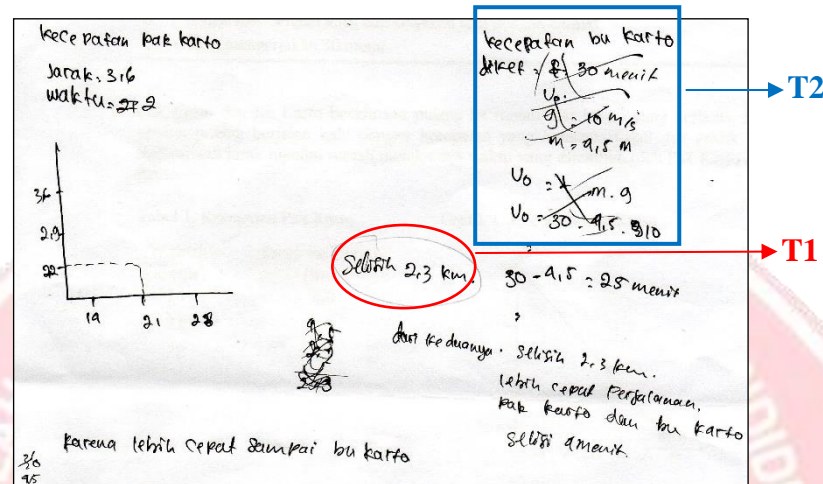 kecepatan pak karto
Jarak = 3,6
waktu = 2
36
2,9
22
19 21 28
kecepatan bu karto
diket = 30 menit
Vo.
g = 10 m/s
m = 4,5 m
Vo = m . g
Vo = 30 . 4,5 . 10
T2
Selisih 2,3 km.
T1
30 - 4,5 = 25 menit
dari keduanya . selisih 2,3 km.
lebih cepat Perjalanan.
pak karto dan bu karto
selisi 4 menit.
karena lebih cepat sampai bu karto